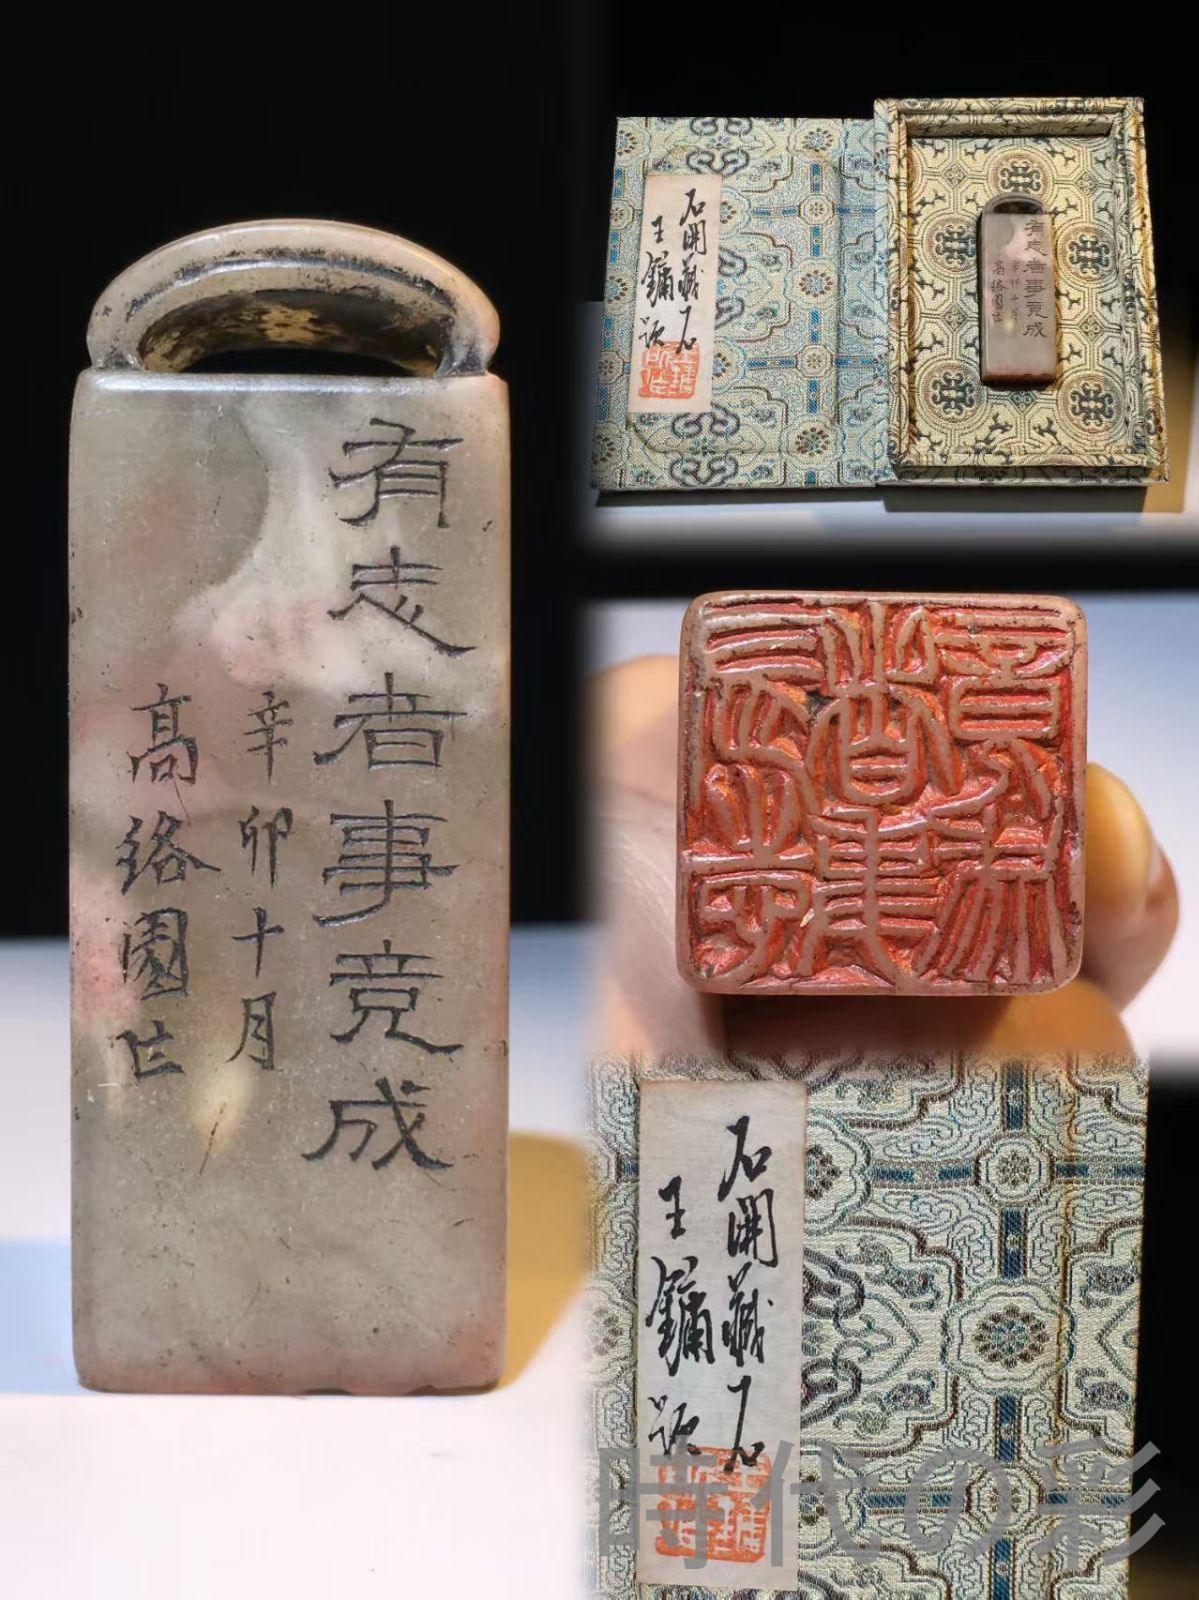 有志者事竟成
辛卯十月
高络園作
石開藏石
王鏞題
有志者事竟成
辛卯十月
高络園作
石開藏石
王鏞題
時代の彩